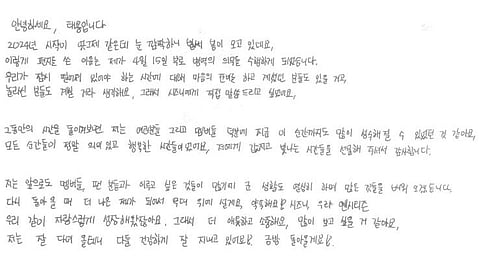 안녕하세요, 태용입니다
2024년 시작이 엊그제 같은데 눈 깜빡하니 벌써 봄이 오고 있네요,
이렇게 편지를 쓴 이유는 제가 4월 15일 부로 병역의 의무를 수행하게 되었습니다.
우리가 잠시 떨어져 있어야 하는 시간에 대해 마음의 준비를 하고 계셨던 분들도 있을 거고,
놀라신 분들도 계실 거라 생각해요, 그래서 시즈니에게 직접 말씀드리고 싶었어요,
그동안의 시간을 돌이켜보면 저는 여러분들 그리고 멤버들 덕분에 지금 이 순간까지도 많이 성숙해질 수 있었던 것 같아요,
모든 순간들이 정말 의미있고 행복한 시간들이었어요, 저에게 값지고 빛나는 시간들을 선물해 주셔서 감사합니다.
저는 앞으로도 멤버들, 팬 분들과 이루고 싶은 것들이 많기에 군 생활도 열심히 하며 많은 것들을 배워 오겠습니다.
다시 돌아올 때 더 나은 제가 되어서 무대 위에 설게요, 약속해요! 시즈니, 우리 엔시티즌
우리 같이 자랑스럽게 성장해왔잖아요. 그래서 더 애틋하고 소중해요, 많이 보고 싶을 거 같아요,
저는 잘 다녀 올테니 다들 건강하게 잘 지내고 있어요! 금방 돌아올게요!